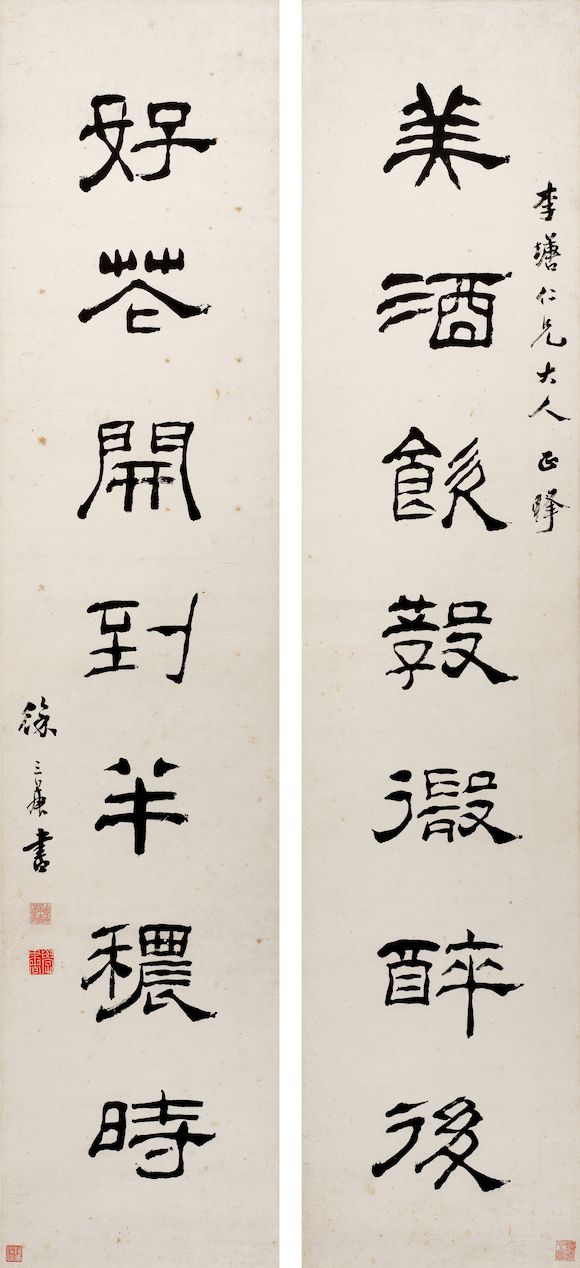 李仁兄大人正
美酒飲教微醉後
好花開到半穠時
徐三庚書